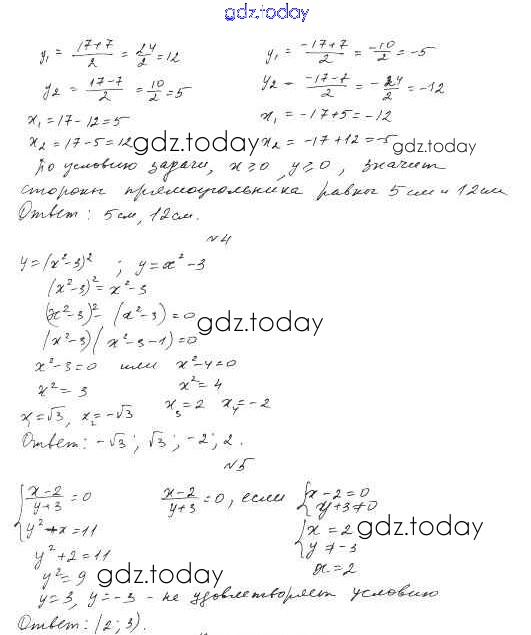 gdz.today
y₁ = (17+7)/2 = 24/2 = 12    y₁ = (-17+7)/2 = -10/2 = -5
y₂ = (17-7)/2 = 10/2 = 5    y₂ - (-17-7)/2 = -24/2 = -12
x₁ = 17-12 = 5    x₁ = -17+5 = -12
x₂ = 17-5 = 12    x₂ = -17+12 = -5
gdz.today gdz.today
По условию задачи, x≥0, y≥0, значит
стороны прямоугольника равны 5 см и 12 см
Ответ: 5 см, 12 см.
№4
y = (x²-3)² ; y = x²-3
(x²-3)² = x²-3
(x²-3)² - (x²-3) = 0
gdz.today
(x²-3)(x²-3-1) = 0
x²-3=0 или x²-4=0
x² = 3    x² = 4
x₁=√3, x₂=-√3    x₃=2    x₄=-2
Ответ: -√3; √3; -2; 2.
№5
{ (x-2)/(y+3) = 0    (x-2)/(y+3) = 0, если { x-2=0
y²+x=11    y+3≠0
gdz.today
y²+2=11    { x=2
y²=9    y≠-3
gdz.today    x=2
y=3, y=-3 - не удовлетворяет условию
Ответ: (2; 3).